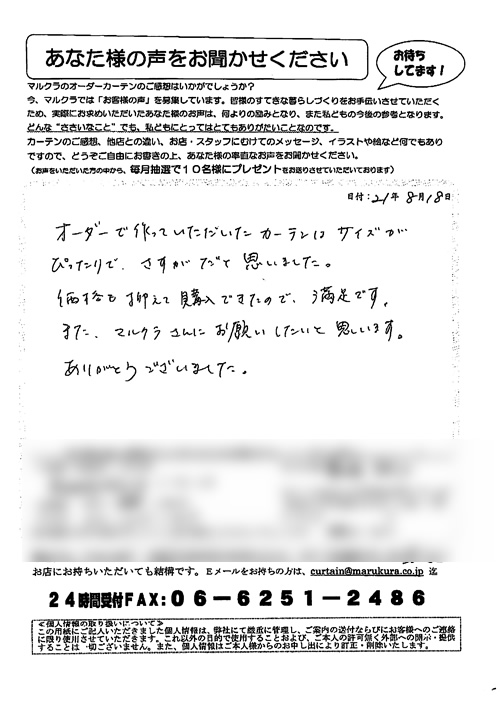 あなた様の声をお聞かせください
お待ち
してます!
マルクラのオーダーカーテンのご感想はいかがでしょうか?
今、マルクラでは「お客様の声」を募集しています。皆様のすてきな暮らしづくりをお手伝いさせていただく
ため、実際にお求めいただいたあなた様のお声は、何よりの励みとなり、また私どもの今後の参考となります。
どんな“ささいなこと”でも、私どもにとってはとてもありがたいことなのです。
カーテンのご感想、他店との違い、お店・スタッフにむけてのメッセージ、イラストや絵など何でもあり
ですので、どうぞご自由にお書きの上、あなた様の率直なお声をお聞かせください。
(お声をいただいた方の中から、毎月抽選で10名様にプレゼントをお送りさせていただいております)
日付:21年8月18日
オーダーで作っていただいたカーテンは サイズが
ぴったりで、さすがだと思いました。
価格も抑えて購入できたので、満足です。
また、マルクラさんにお願いしたいと思います。
ありがとうございました。
お店にお持ちいただいても結構です。Eメールをお持ちの方は、curtain@marukura.co.jp 迄
24時間受付FAX:06-6251-2486
<個人情報の取り扱いについて>
この用紙にご記入いただきました個人情報は、弊社にて厳重に管理し、ご案内の送付ならびにお客様へのご連絡
に限り使用させていただきます。これ以外の目的で使用することおよび、ご本人の許可無く外部への開示・提供
することは一切ございません。また、個人情報はご本人様からのお申し出により訂正・削除いたします。